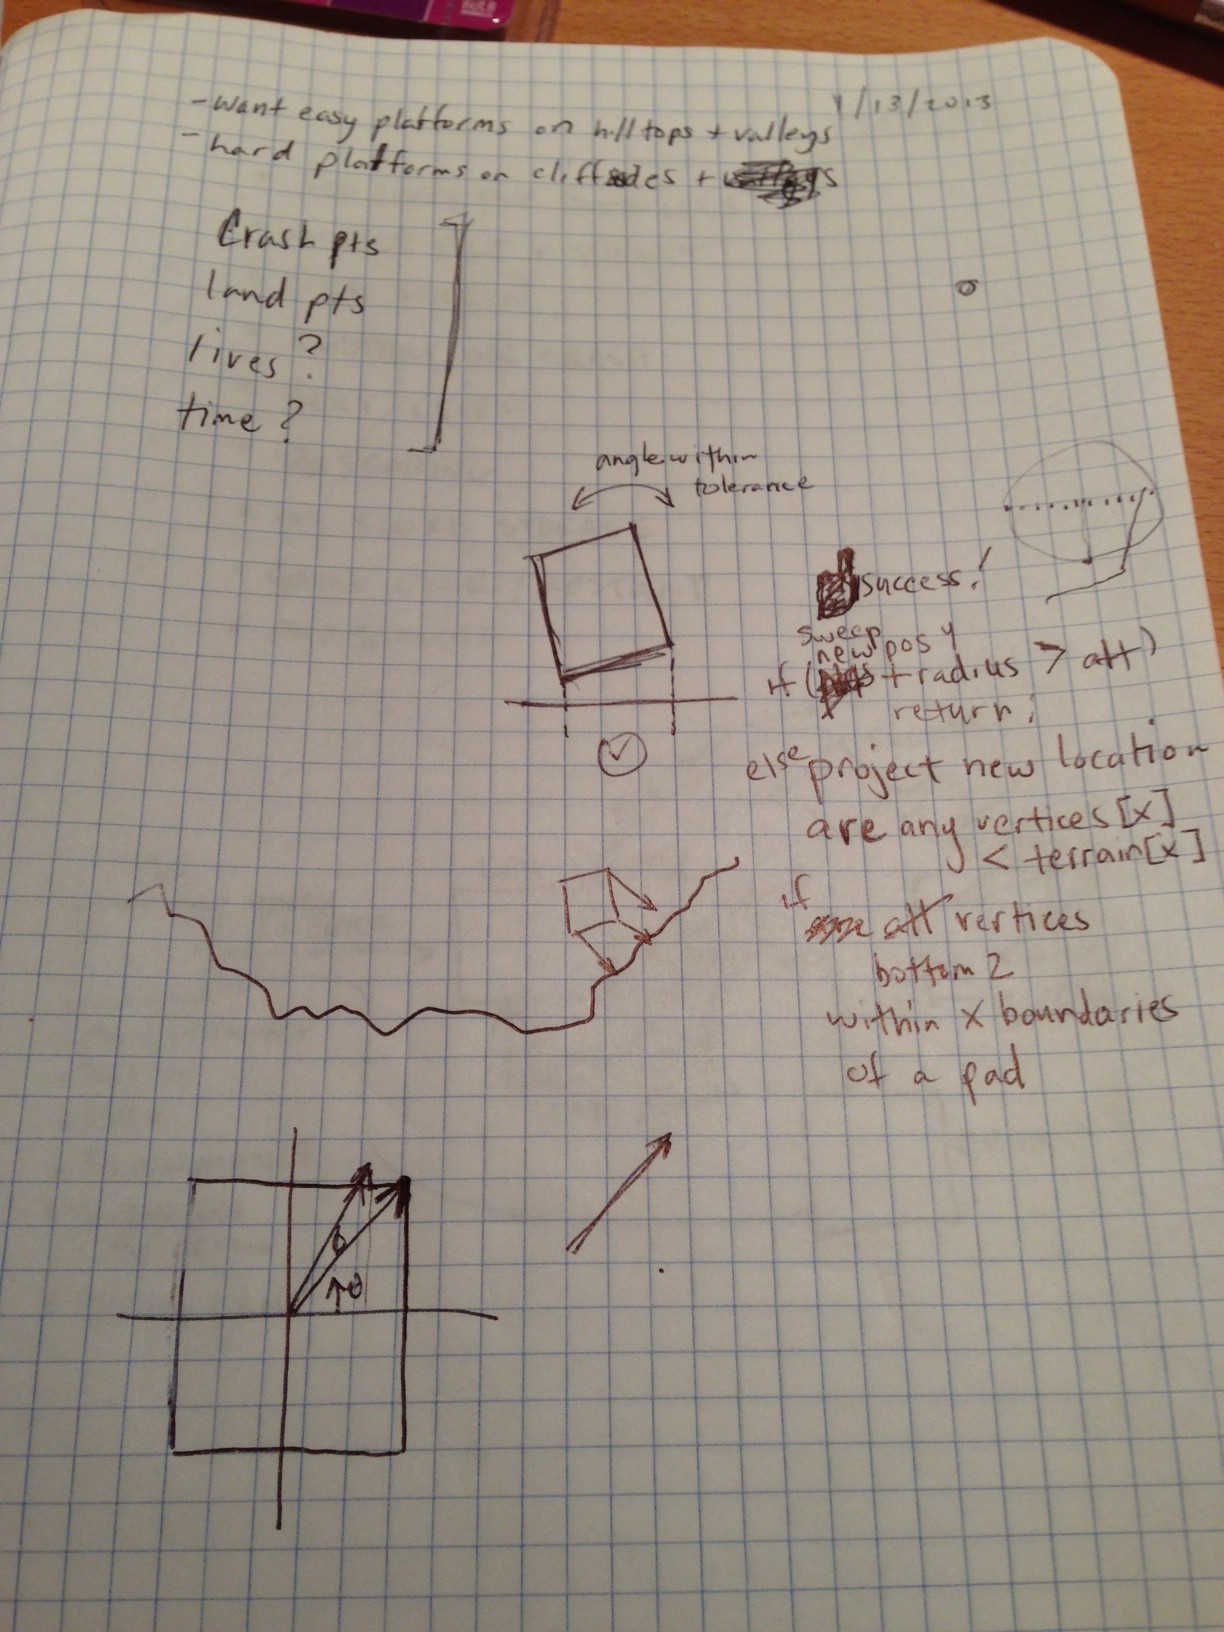 1/13/2013
- want easy platforms on hilltops + valleys
- hard platforms on cliffsides +
Crash pts
land pts
lives?
time?
angle within
tolerance
success!
sweep
new pos y
if ( + radius > alt)
return;
else project new location
are any vertices[x]
< terrain[x]
if
all vertices
bottom 2
within x boundaries
of a pad
θ